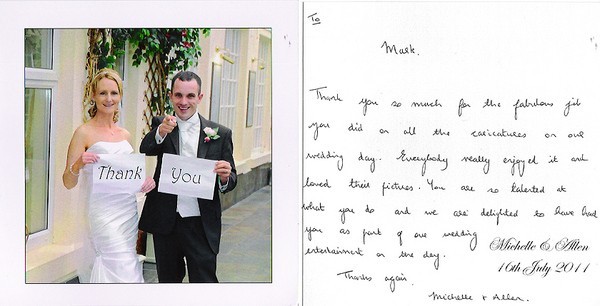 Thank
You
To
Mark.
Thank you so much for the fabulous job
you did on all the caricatures on our
wedding day. Everybody really enjoyed it and
loved their pictures. You are so talented at
what you do and we are delighted to have had
you as part of our wedding
entertainment on the day.
Thanks again.
Michelle + Allen.
Michelle & Allen
16th July 2011